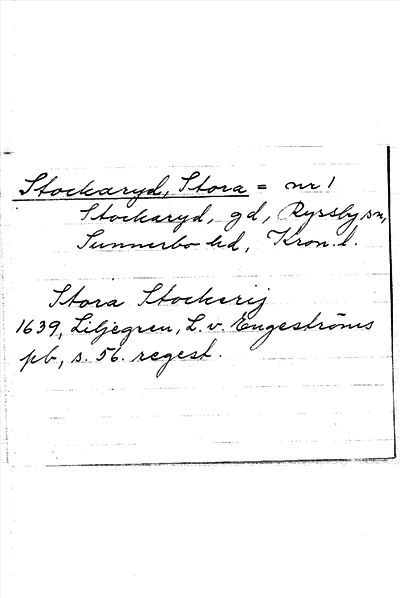 Stockaryd, Stora = nr 1
Stockaryd, gd, Ryssby sn,
Sunnerbo hd, Kron. l.
Stora Stockerij
1639, Liljegren, L. v. Engeströms
pb, s. 56. regest.